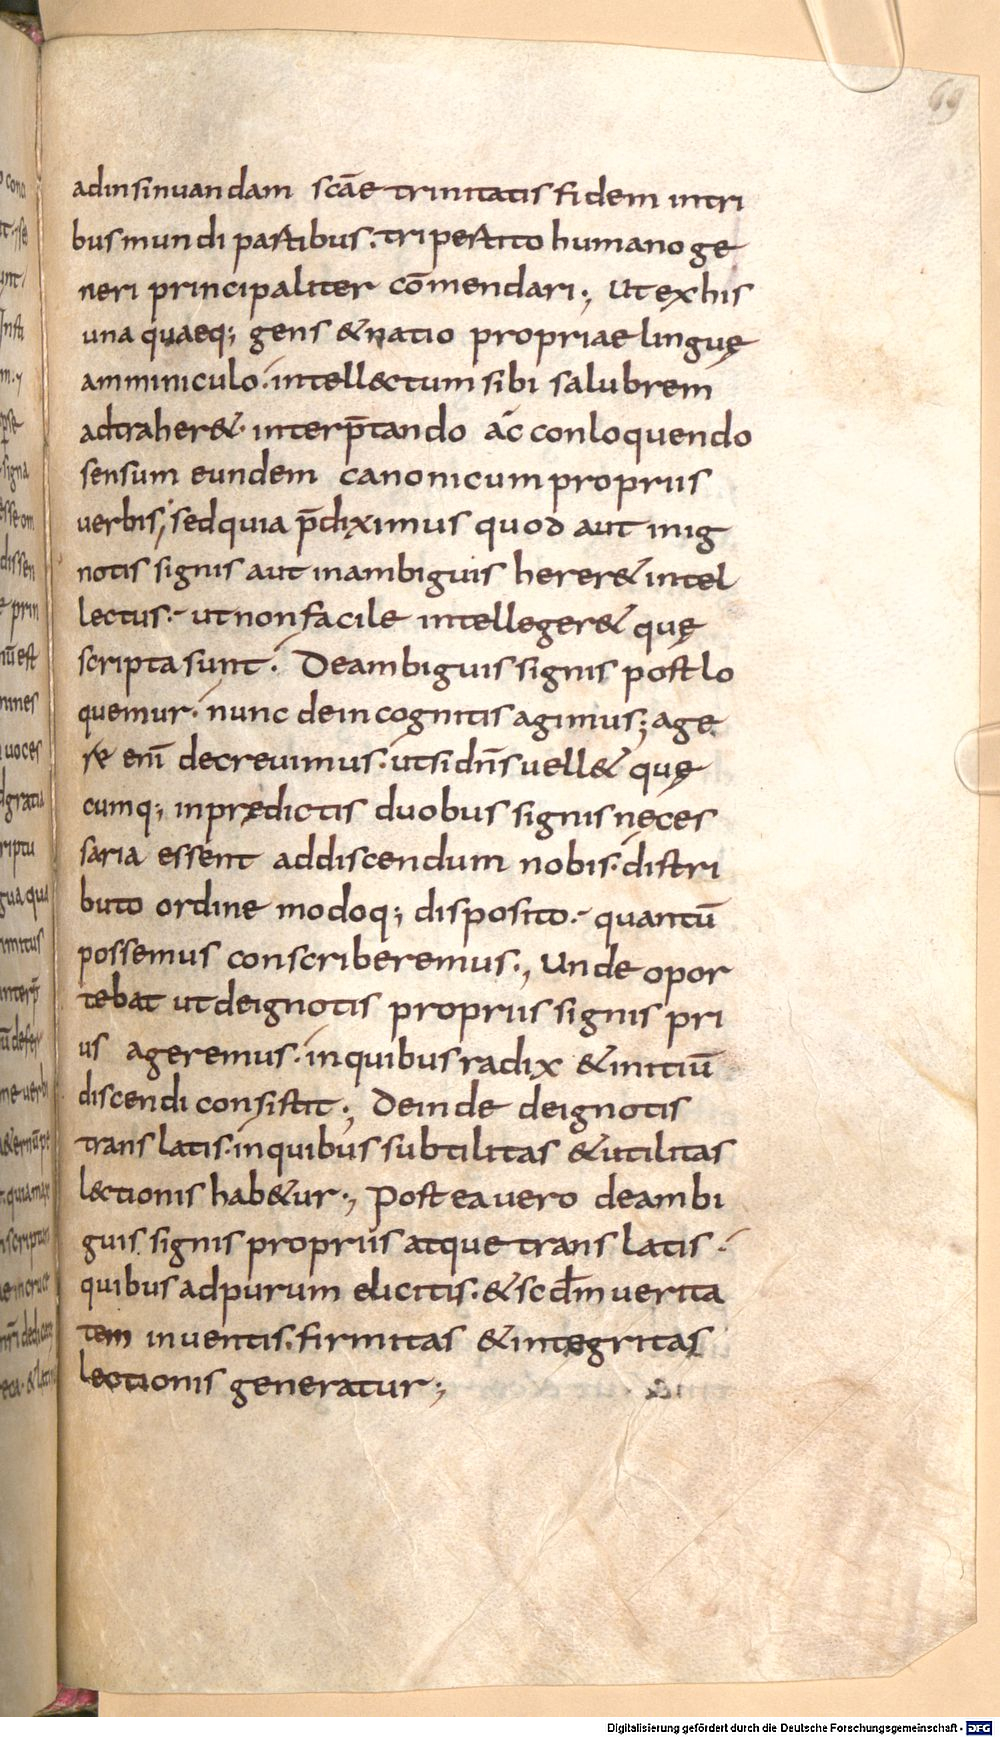 69
adinsinuandam scāe trinitatis fidem intri
bus mundi partibus. tripertito humano ge
neri principaliter cōmendari; Ut ex his
una quaeq; gens & natio propriae linguę
amminiculo. intell&ctum sibi salubrem
adtraher&. interp̄tando ac conloquendo
sensum eundem canonicum propriis
uerbis; sed quia p̄diximus quod aut inig
notis signis aut inambiguis herer& intel
lectus. ut non facile intelleger& quę
scripta sunt. De ambiguis signis post lo
quemur. nunc de incognitis agimus; age
re enī decreuimus. ut si dn̄s uell& quę
cumq; inprędictis duobus signis neces
saria essent addiscendum nobis. distri
buto ordine modoq; disposito. quantū
possemus conscriberemus., Unde opor
tebat ut deignotis propriis signis pri
us ageremus. in quibus radix & initiū
discendi consistit., Deinde deignotis
translatis. in quibus subtilitas & utilitas
l&ctionis hab&ur., Postea uero de ambi
guis signis propriis atque translatis.
quibus adpurum elicitis. & scdm̄ uerita
tem inuentis. firmitas & integritas
lectionis generatur;
Digitalisierung gefördert durch die Deutsche Forschungsgemeinschaft - DFG